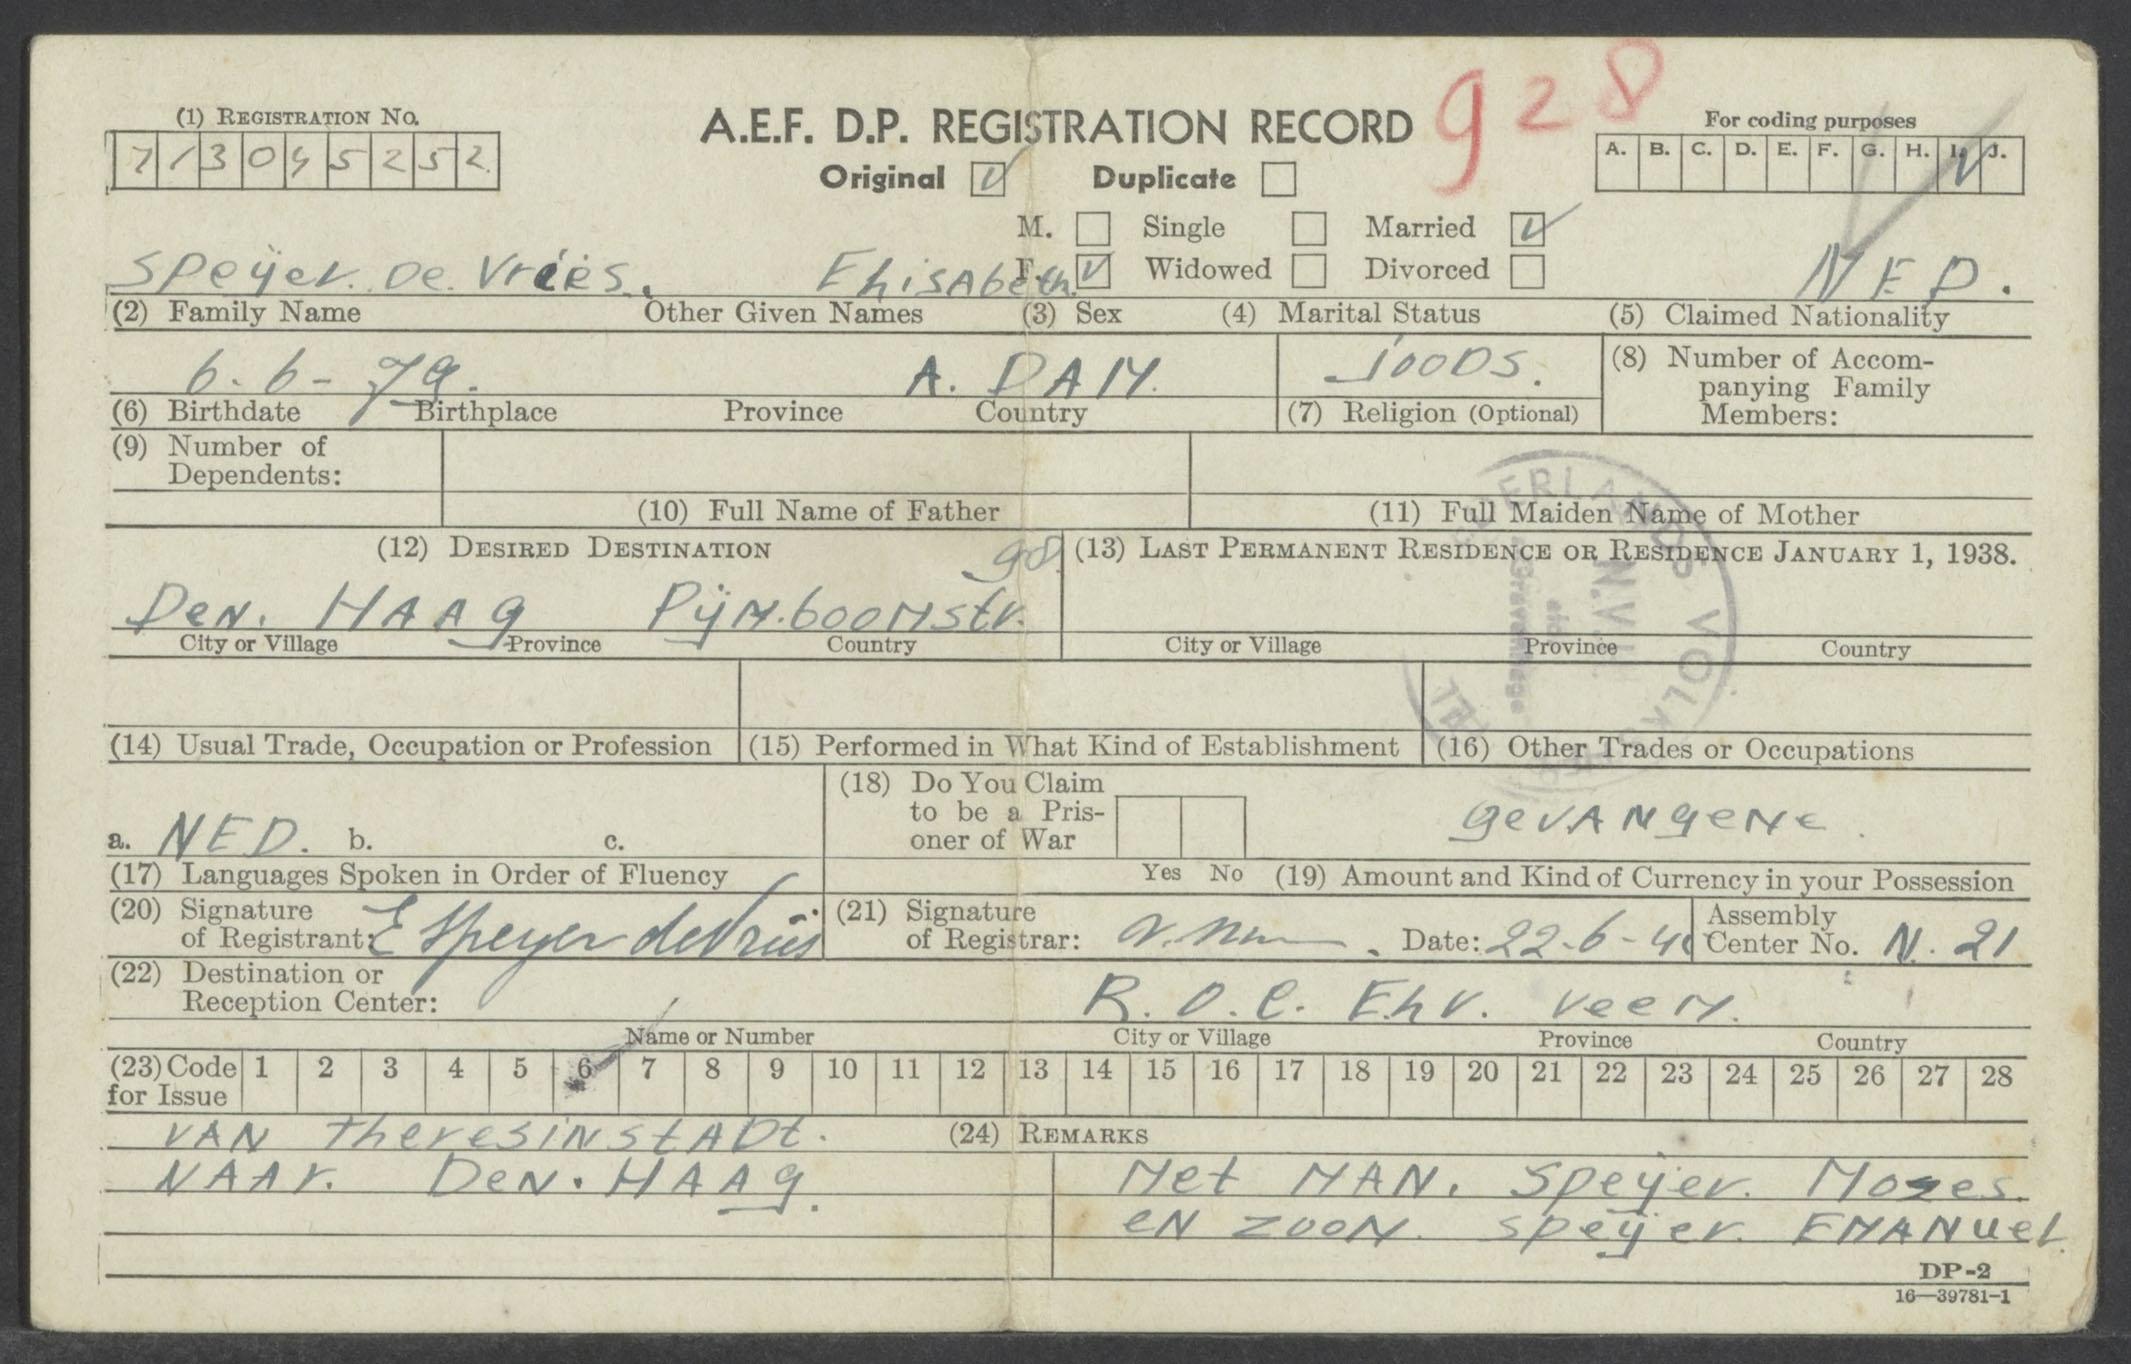 (1) REGISTRATION No.
7 1 3 0 4 5 2 5 2
A.E.F. D.P. REGISTRATION RECORD
928
Original V Duplicate
For coding purposes
A. B. C. D. E. F. G. H. I. J.
M. Single Married V
F. V Widowed Divorced
Speÿer. De. Vries. Elisabeth. NED.
(2) Family Name Other Given Names (3) Sex (4) Marital Status (5) Claimed Nationality
6. 6 - 79. A. DAM. JOODS.
(6) Birthdate Birthplace Province Country (7) Religion (Optional)
(8) Number of Accom-
panying Family
Members:
(9) Number of
Dependents:
(10) Full Name of Father (11) Full Maiden Name of Mother
(12) DESIRED DESTINATION 98 (13) LAST PERMANENT RESIDENCE OR RESIDENCE JANUARY 1, 1938.
Den. HAAg Pÿn.boomstr.
City or Village Province Country City or Village Province Country
(14) Usual Trade, Occupation or Profession (15) Performed in What Kind of Establishment (16) Other Trades or Occupations
a. NED. b. c.
(17) Languages Spoken in Order of Fluency
(18) Do You Claim
to be a Pris-
oner of War
Yes No
gevangene.
(19) Amount and Kind of Currency in your Possession
(20) Signature
of Registrant: E Speyer de Vries
(21) Signature
of Registrar: Date: 22-6-4
Assembly
Center No. N. 21
(22) Destination or
Reception Center: R. O. C. Ehv. veem.
Name or Number City or Village Province Country
(23) Code
for Issue
1 2 3 4 5 6 7 8 9 10 11 12 13 14 15 16 17 18 19 20 21 22 23 24 25 26 27 28
VAN theresinstADt. (24) REMARKS
NAAr. Den. HAAg.
Met MAN. Speÿer. Moses.
en zoon. Speÿer. EMANuel.
DP-2
16—39781-1